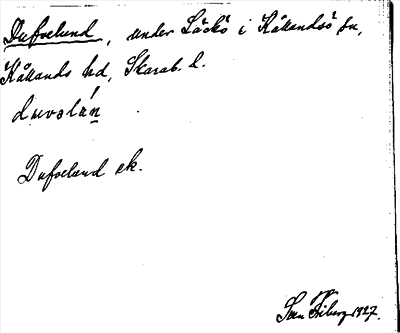 Dufvelund, under Läckö i Kållandsö sn,
Kållands hd, Skarab. l.
duvslán
Dufveland ek.
Sven Friberg 1927.